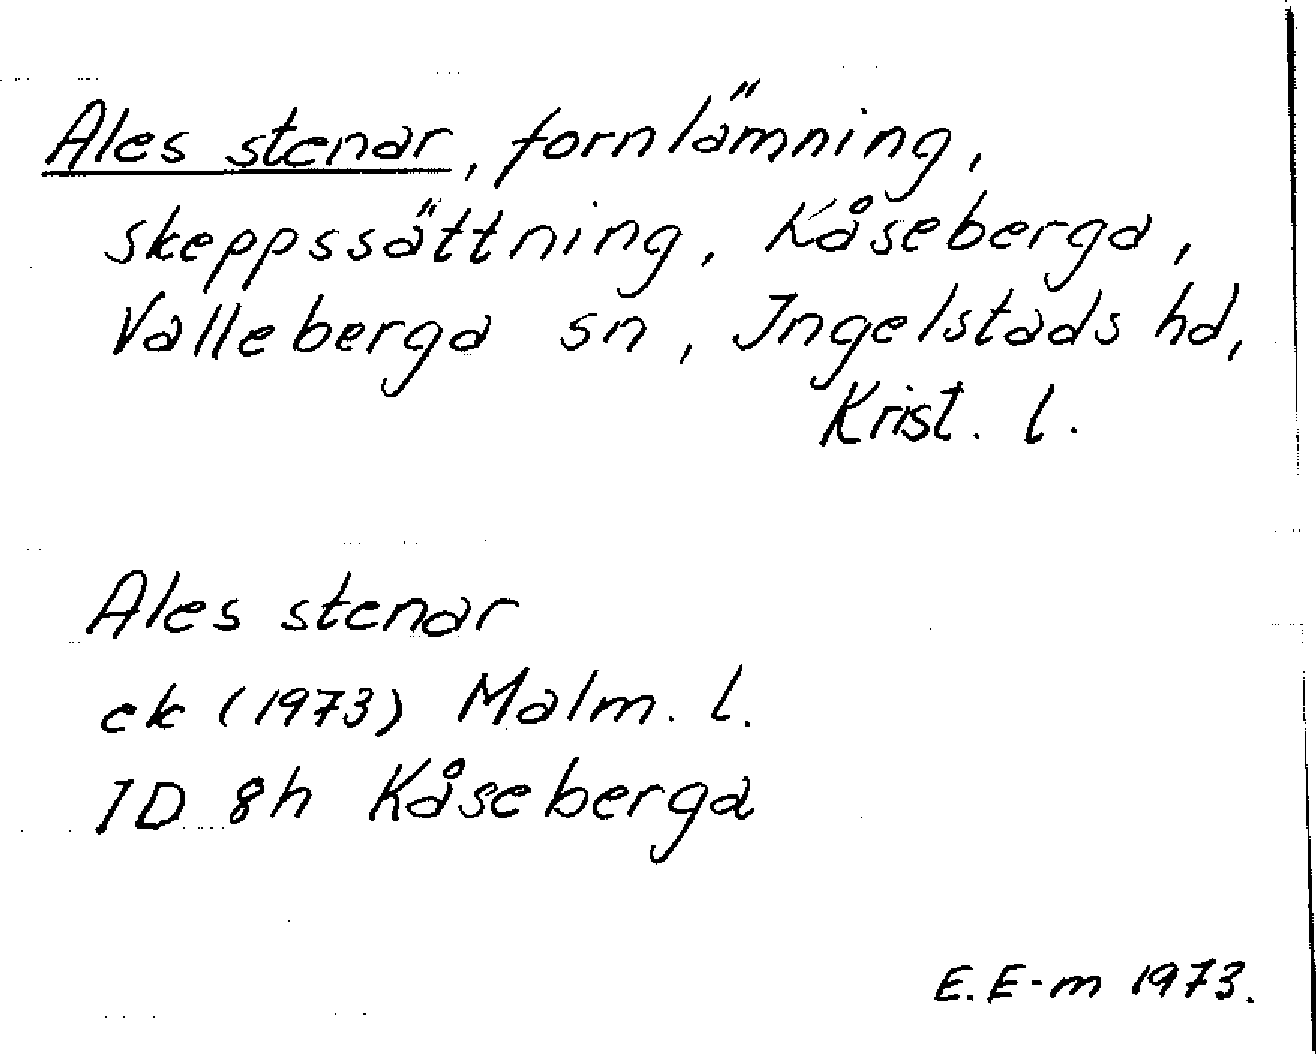 Ales stenar, fornlämning,
skeppssättning, Kåseberga,
Valleberga sn, Ingelstads hd,
Krist. l.
Ales stenar
ek (1973) Malm. l.
1D 8h Kåseberga
E. E-m 1973.